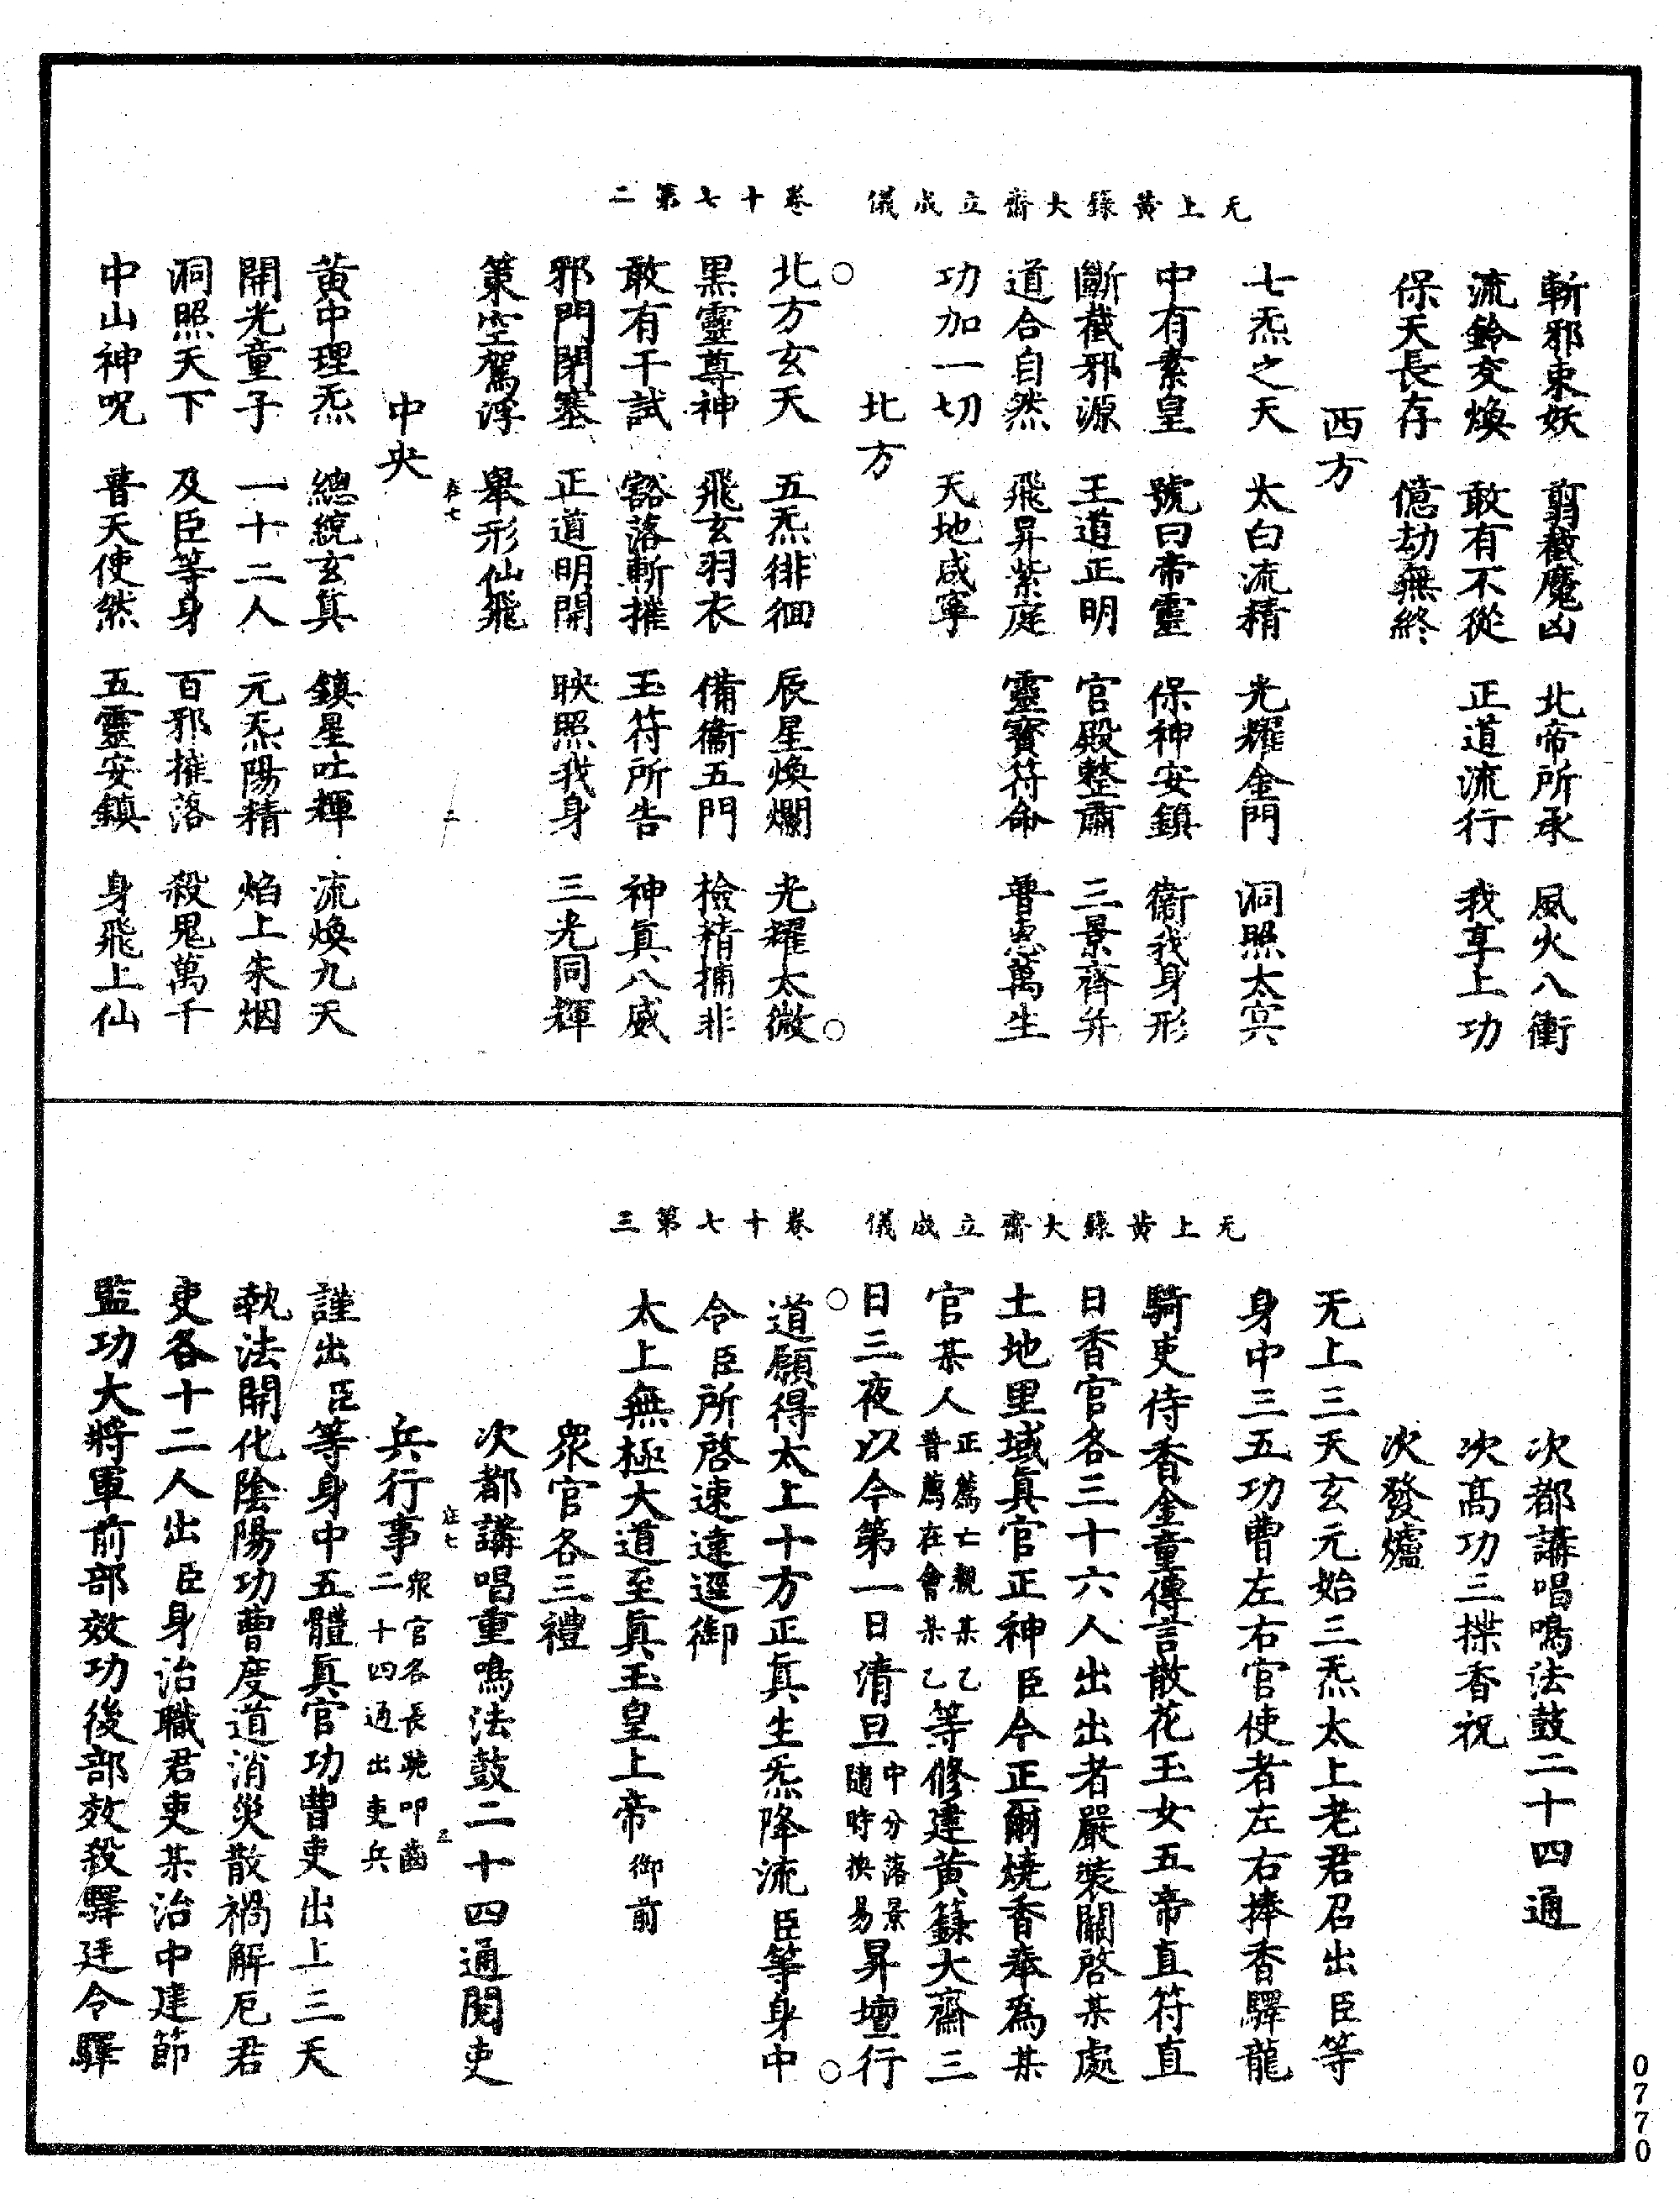 无上黃籙大齋立成儀　卷十七第二
斬邪束妖　剪截魔凶　北帝所承　風火八衝
流鈴交煥　敢有不從　正道流行　我享上功
保天長存　億劫無終
西方
七炁之天　太白流精　光耀金門　洞照太冥
中有素皇　號曰帝靈　保神安鎮　衞我身形
斷截邪源　王道正明　官殿整肅　三景齊并
道合自然　飛昇紫庭　靈寶符命　普惠萬生
功加一切　天地咸寧
北方
北方玄天　五炁徘徊　辰星煥爛　光耀太微
黑靈尊神　飛玄羽衣　備衞五門　檢精捕非
敢有干試　豁落斬摧　玉符所告　神眞八威
邪門閉塞　正道明開　映照我身　三光同輝
策空駕浮　舉形仙飛
中央
黃中理炁　總統玄眞　鎮星吐輝　流煥九天
開光童子　一十二人　元炁陽精　焰上朱烟
洞照天下　及臣等身　百邪摧落　殺鬼萬千
中山神呪　普天使然　五靈安鎮　身飛上仙
无上黃籙大齋立成儀　卷十七第三
次都講唱鳴法鼓二十四通
次高功三揲香祝
次發爐
无上三天玄元始三炁太上老君召出臣等
身中三五功曹左右官使者左右捧香驛龍
騎吏侍香金童傳言散花玉女五帝直符直
日香官各三十六人出出者嚴裝關啓某處
土地里域眞官正神臣今正爾燒香奉爲某
官某人正薦亡親某乙普薦在會某乙等修建黃籙大齋三
日三夜以今第一日清旦中分落景隨時換易昇壇行
道願得太上十方正眞生炁降流臣等身中
令臣所啓速達逕御
太上無極大道至眞玉皇上帝御前
眾官各三禮
次都講唱重鳴法鼓二十四通閱吏
兵行事眾官各長跪叩齒二十四通出吏兵
謹出臣等身中五體眞官功曹吏出上三天
執法開化陰陽功曹度道消災散禍解厄君
吏各十二人出臣身治職君吏某治中建節
監功大將軍前部效功後部效殺驛廷令驛
0770